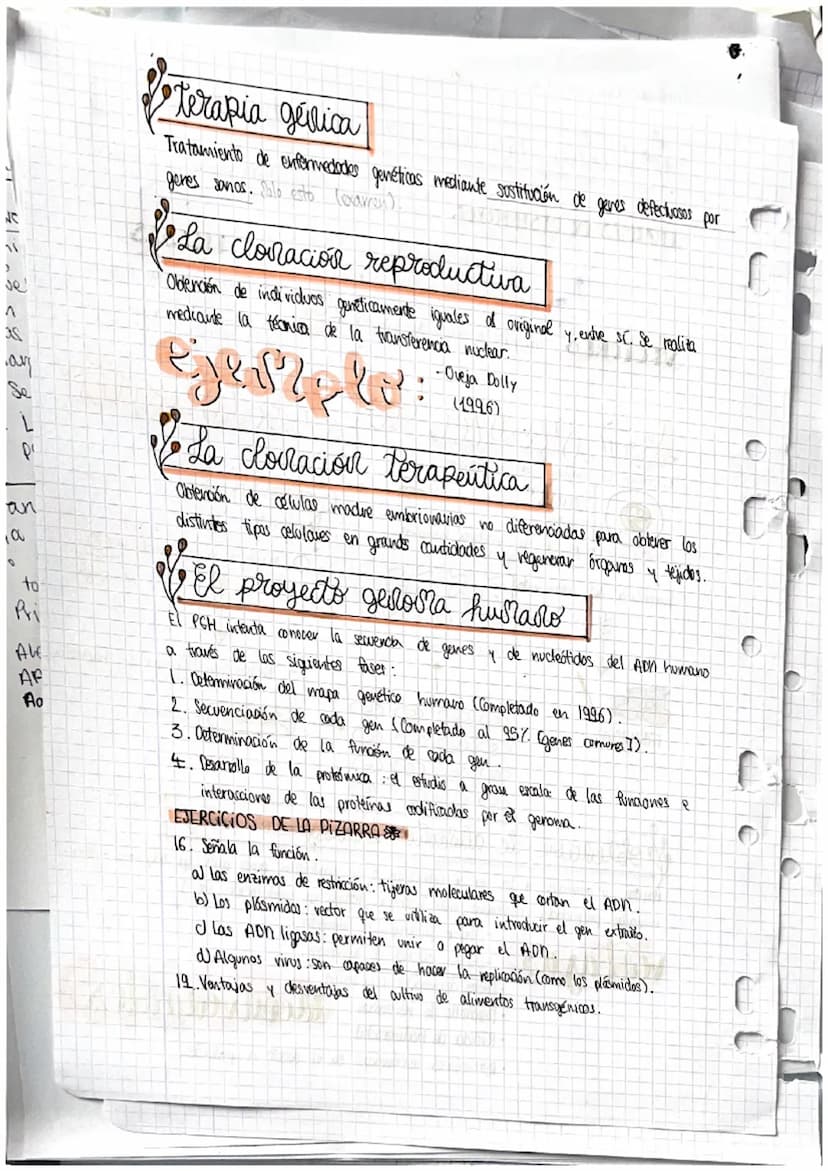 terapia génica
Tratamiento de enfermedades genéticas mediante sustitución de genes defectuosos por
genes sanos. Solo esto (examen).
La clonación reproductiva
Obtención de individuos genéticamente iguales al original y, entre sí. Se realiza
mediante la técnica de la transferencia nuclear.
ejemplo: - Oveja Dolly
(1996)
La clonación terapéutica
Obtención de células madre embrionarias no diferenciadas para obtener los
distintos tipos celulares en grands cantidades y regenerar órganos y tejidos.
El proyecto genoma humano
El PGH intenta conocer la secuencia de genes y de nucleótidos del ADN humano
a través de las siguientes fases:
1. Determinación del mapa genético humano (Completado en 1996).
2. Secuenciación de cada gen (Completado al 95% [genes comunes]).
3. Determinación de la función de cada gen.
4. Desarrollo de la proteómica: el estudio a gran escala de las funciones e
interacciones de las proteínas codificadas por el genoma.
EJERCICIOS DE LA PIZARRA
16. Señala la función.
a) las enzimas de restricción: tijeras moleculares que cortan el ADN.
b) Los plásmidos: vector que se utiliza para introducir el gen extraído.
c) Las ADN ligasas: permiten unir o pegar el ADN.
d) Algunos virus: son capaces de hacer la replicación (como los plásmidos).
19. Ventajas y desventajas del cultivo de alimentos transgénicos.